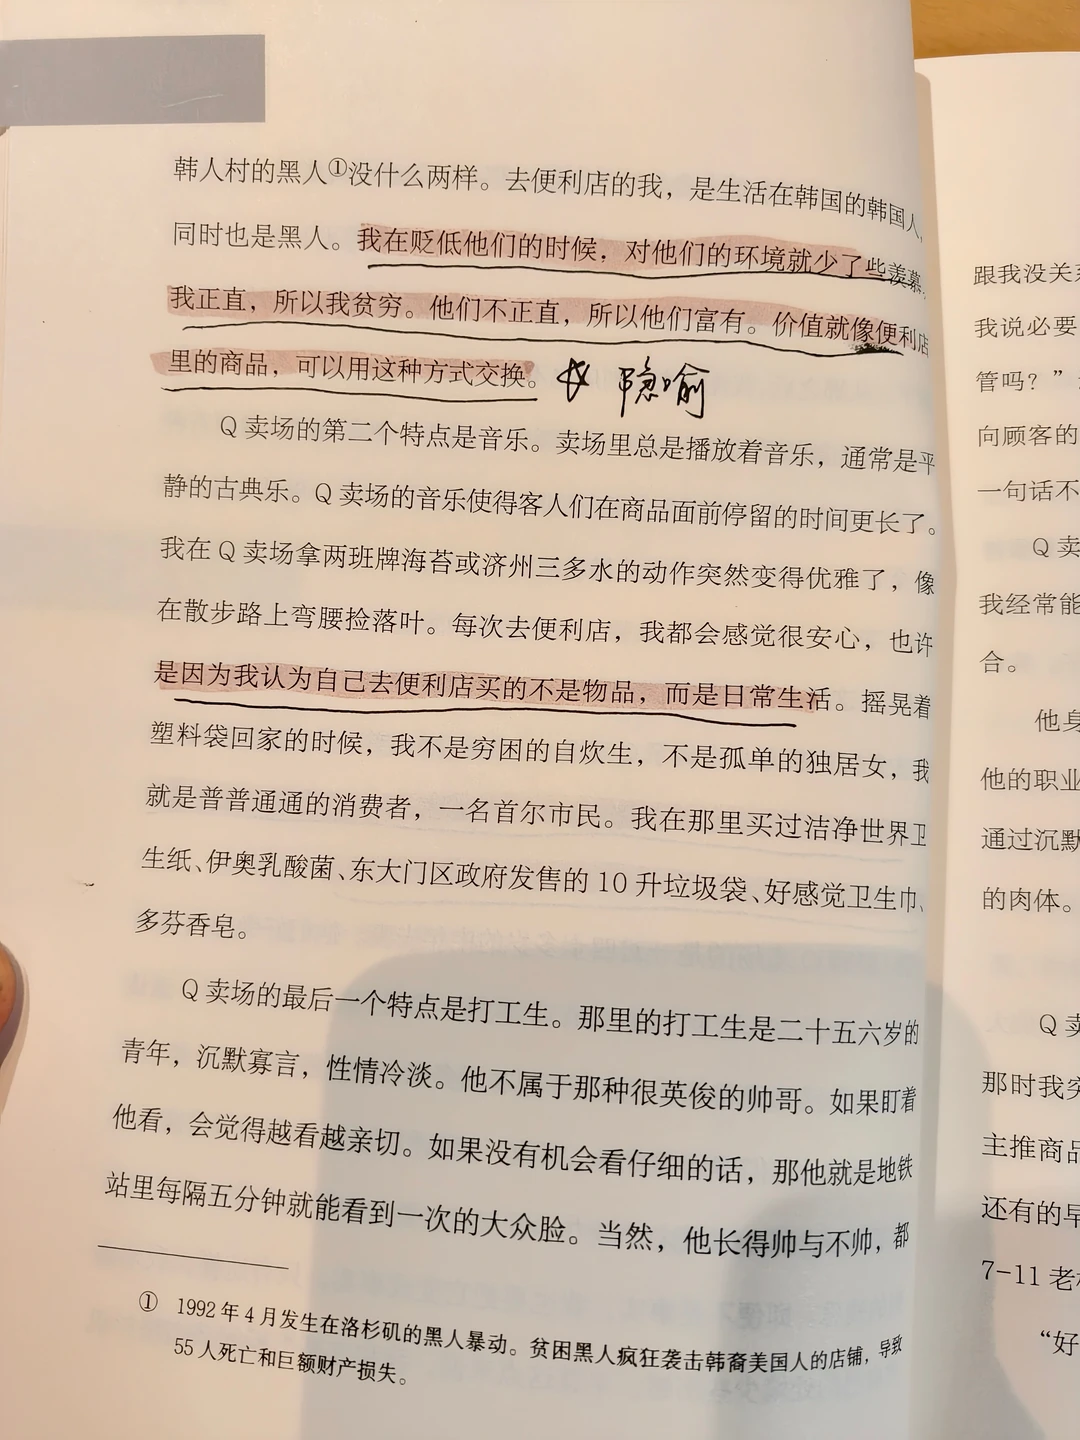 韩人村的黑人①没什么两样。去便利店的我，是生活在韩国的韩国人，
同时也是黑人。我在贬低他们的时候，对他们的环境就少了些羡慕。
我正直，所以我贫穷。他们不正直，所以他们富有。价值就像便利店
里的商品，可以用这种方式交换。 隐喻
Q 卖场的第二个特点是音乐。卖场里总是播放着音乐，通常是平
静的古典乐。Q 卖场的音乐使得客人们在商品面前停留的时间更长了。
我在 Q 卖场拿两班牌海苔或济州三多水的动作突然变得优雅了，像
在散步路上弯腰捡落叶。每次去便利店，我都会感觉很安心，也许
是因为我认为自己去便利店买的不是物品，而是日常生活。摇晃着
塑料袋回家的时候，我不是穷困的自炊生，不是孤单的独居女，我
就是普普通通的消费者，一名首尔市民。我在那里买过洁净世界卫
生纸、伊奥乳酸菌、东大门区政府发售的 10 升垃圾袋、好感觉卫生巾、
多芬香皂。
Q 卖场的最后一个特点是打工生。那里的打工生是二十五六岁的
青年，沉默寡言，性情冷淡。他不属于那种很英俊的帅哥。如果盯着
他看，会觉得越看越亲切。如果没有机会看仔细的话，那他就是地铁
站里每隔五分钟就能看到一次的大众脸。当然，他长得帅与不帅，都
① 1992 年 4 月发生在洛杉矶的黑人暴动。贫困黑人疯狂袭击韩裔美国人的店铺，导致
55 人死亡和巨额财产损失。
跟我没关系
我说必要
管吗？”
向顾客的
一句话不
Q 卖
我经常能
合。
他身
他的职业
通过沉默
的肉体。
Q 卖
那时我突
主推商品
还有的早
7-11 老
“好